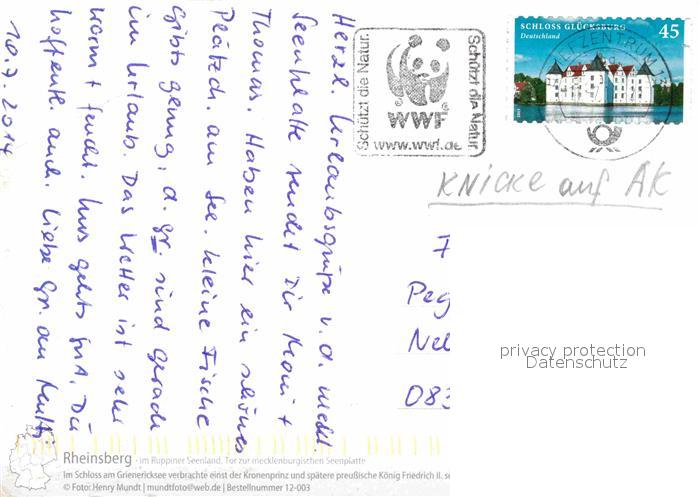 Herzl. Urlaubsgrüße v. d. meckl.
Seenplatte sendet Dir Moni +
Thomas. Haben hier ein schönes
Plätzch. am See. Kleine Fische
gibts genug, d. gr. sind gerade
im Urlaub. Das Wetter ist sehr
warm + feucht. Uns gehts gut. Dir
hoffentl. auch. Liebe Gr. an
10.7.2014
Schützt die Natur.
WWF
www.wwf.de
Schützt die Natur.
SCHLOSS GLÜCKSBURG 45
Deutschland
ZENTRUM
KNICKE auf AK
Peg
Nel
083
privacy protection
Datenschutz
Rheinsberg - im Ruppiner Seenland. Tor zur mecklenburgischen Seenplatte
Im Schloss am Grienericksee verbrachte einst der Kronenprinz und spätere preußische König Friedrich II. se
© Foto: Henry Mundt | mundtfoto@web.de | Bestellnummer 12-003